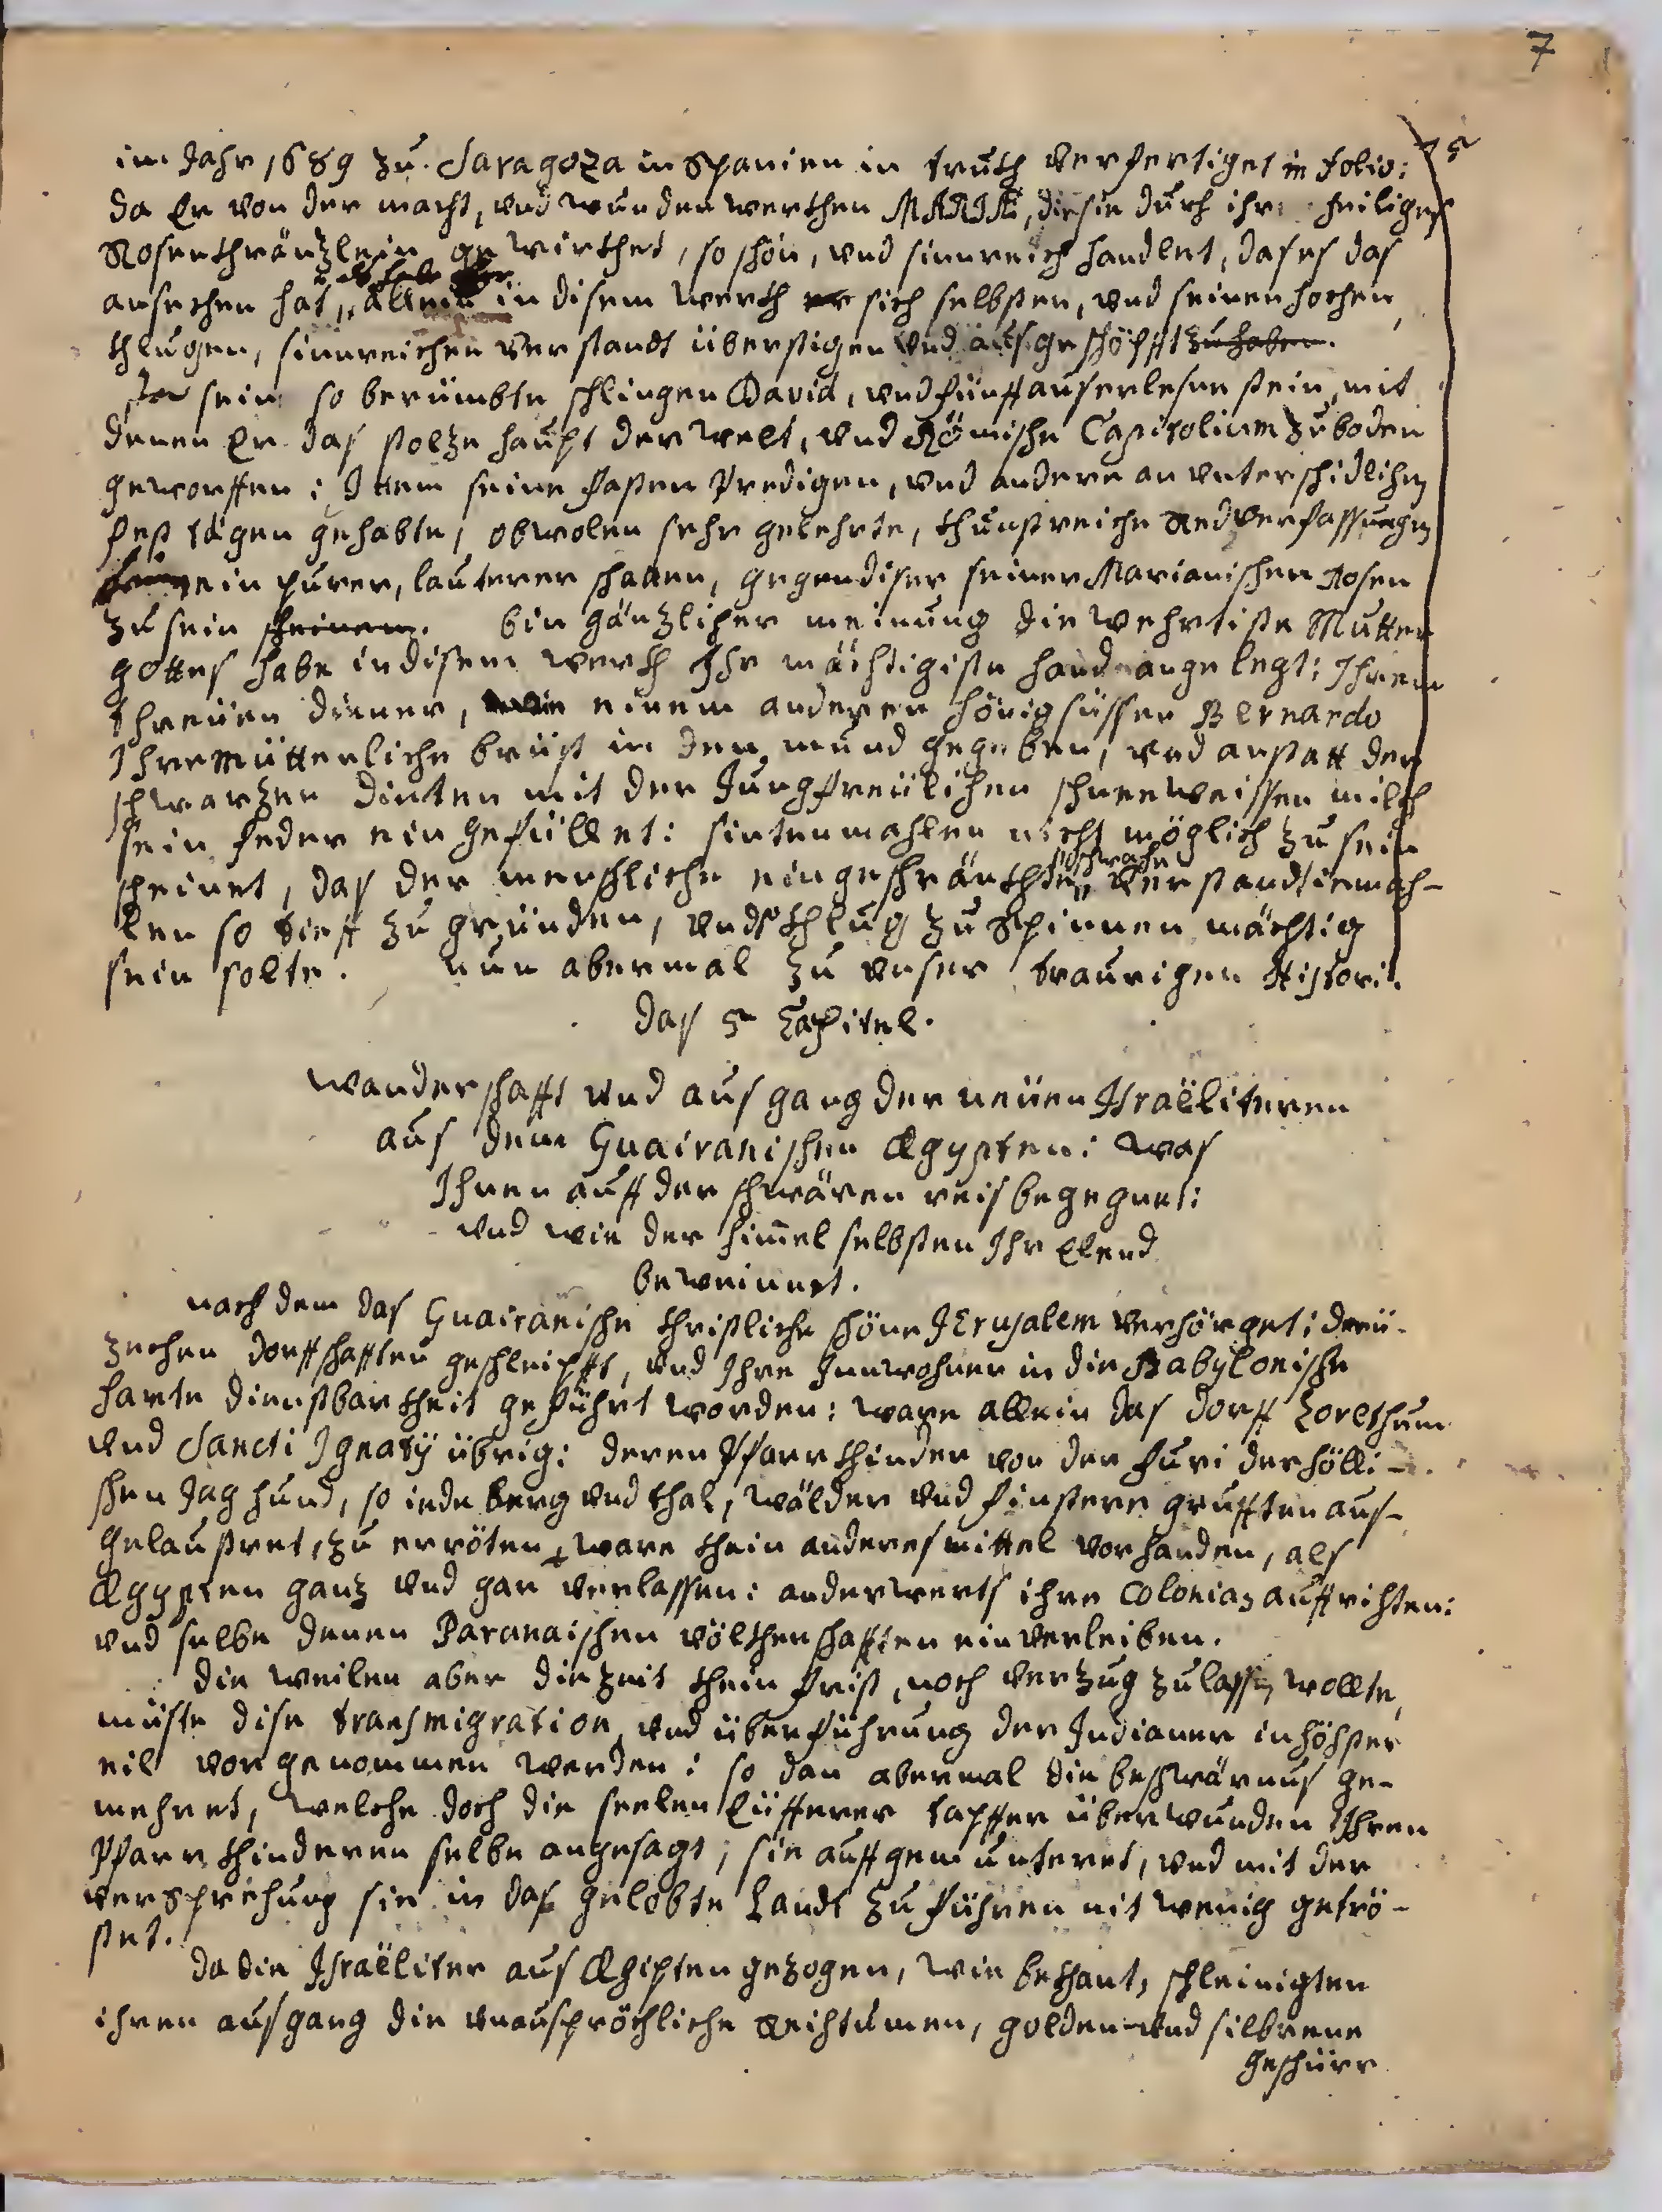 7
75
im Jahr 1689 zu Saragoza in Spanien in truch verfertiget in folio:
da Er von der macht, und wunderwerchen MARIAE, die sie durch ihr heiliges
Rosenchräntzlein gewirchet, so schön, und sinnreich handlet, das es das
ansechen hat, als hab er in disem werch er sich selbsten, und seinen hochen,
chlugen, sinnreichen verstandt überstigen und ausgeschöpfft zu haben.
sein so berümbte schlingen David, und fünff auserlesne stein, mit
denen Er das stoltze haupt der welt, und Römische Capitolium zu boden
geworffen: Item seine fasten Predigen, und andere an unterschidlichen
fest tägen gehabte, obwolen sehr gelehrte, chunstreiche Redverfassungen
ein purer, lauterer schatten, gegen diser seiner Marianischen Rosen
zu sein scheinen. bin gäntzlicher meinung die wehrtiste Mutter
gottes habe in disem werch Ihr mächtigiste hand angelegt: Ihrem
threuen diener, wie einem anderen hönigsüssen Bernardo
Ihre Mütterliche brüst in den mund gegeben, und anstatt der
schwarzen dinten mit der Jungfreulichen schneeweissen milch
sein feder eingefüllet: sintenmahlen nicht möglich zu sein
scheinet, das der menschliche eingeschränchte schwache verstandt iemah-
len so tieff zu gründen, und so chlug zu Spinnen mächtig
sein solte. nun abermal zu unser traurigen Histori.
das 5 Capitel.
wanderschafft und ausgang der neuen Israëliteren
aus dem Guairanischen Ægypten: was
Ihnen auff der schwären reis begegnet:
und wie der himmel selbsten Ihr Elend
beweinnet.
nach dem das Guairanische christliche schöne JErusalem verhörget: dreü-
zechen dorffschafften geschleipfft, und Ihre Innwohner in die Babylonische
harte dienstbarcheit geführt worden: ware allein das dorff Lorethum
und Sancti Ignatij übrig: deren Pfarrchinder von der furi der hölli-
schen Jaghund, so iede berg und thal, wälder und finstere grufften aus-
gelaustret, zu erröten, ware chein anderes mittel vorhanden, als
Ægypten gantz und gar verlassen: anderwerts ihre Colonias auffrichten:
und selbe denen Paranaischen völcherschafften einverleiben.
die weilen aber die zeit chein frist, noch verzug zulassen wollte,
müste dise transmigration, und überführung der Indianer in höchster
eil vorgenommen werden: so dan abermal die beschwärnus ge-
mehret, welche doch die seelen Eüfferer tapffer überwunden Ihren
Pfarrchinderen selbe angesagt, sie auffgemunteret, und mit der
versprechung sie in das gelobte Landt zu führen nit wenig getrö-
stet.
da die Israëliter aus Ægipten gezogen, wie bechant, schleinigten
ihren ausgang die unausspröchliche reichtumen, golden- und silbrene
geschürr